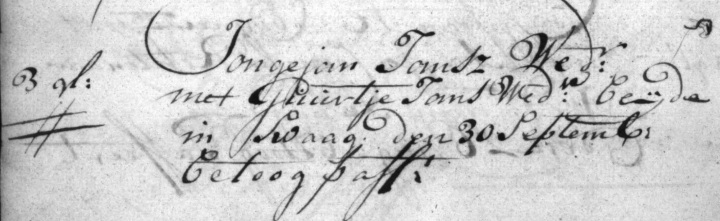 Jongejan Jansz Wedr:
3 gl: met Guurtje Jans Wedw: beyde
in Swaag den 30 Septemb:
betoog pass: